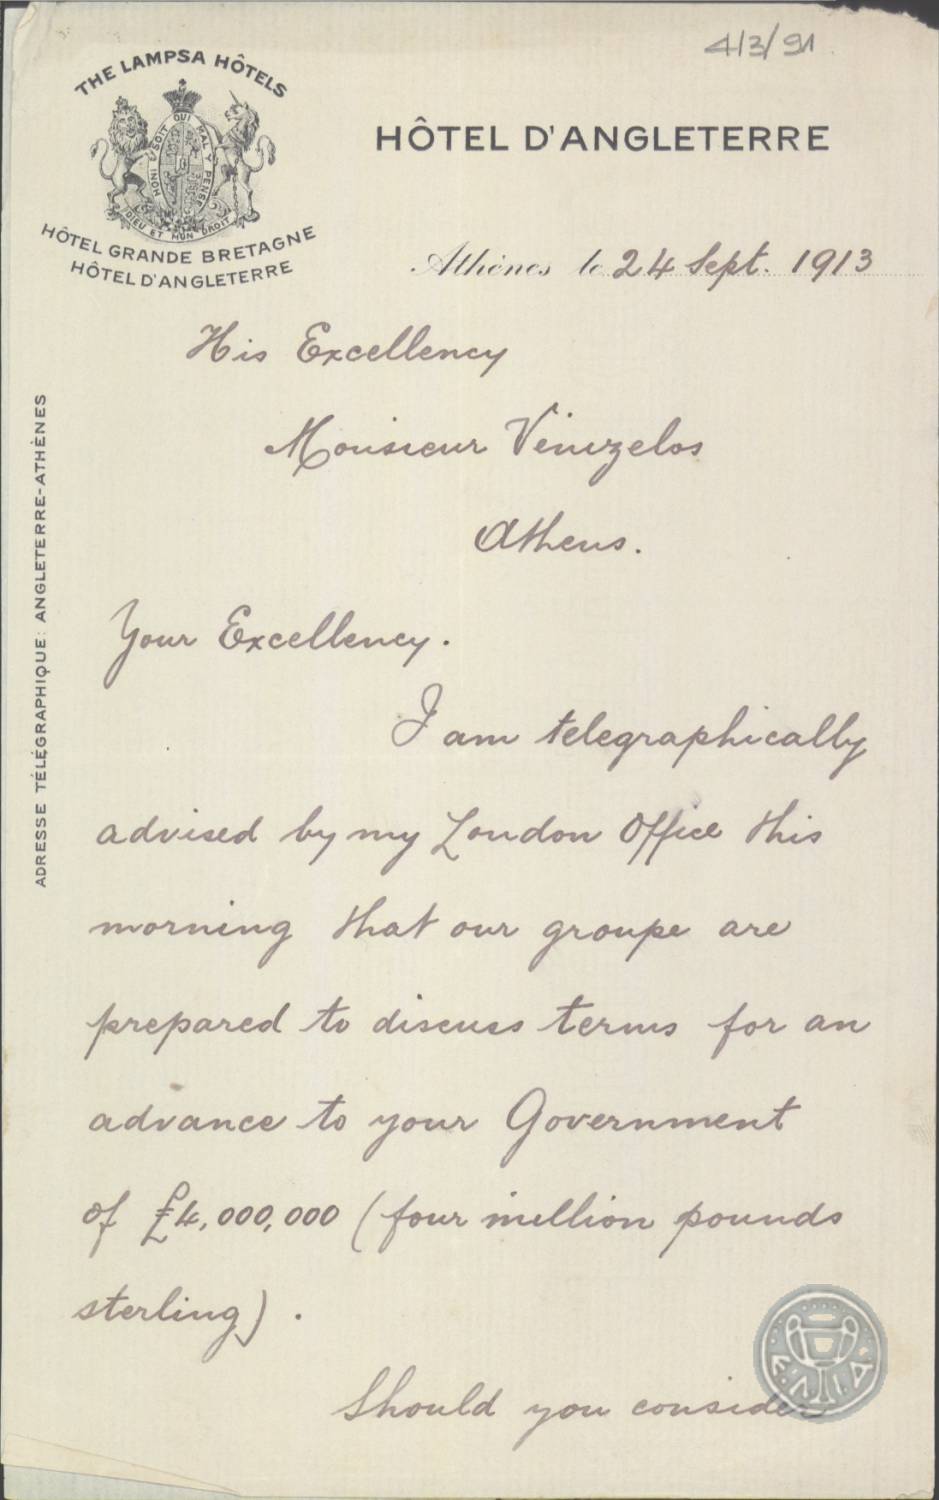 4/3/91
THE LAMPSA HÔTELS
HONI SOIT QUI MAL Y PENSE
DIEU ET MON DROIT
HÔTEL GRANDE BRETAGNE
HÔTEL D'ANGLETERRE
HÔTEL D'ANGLETERRE
Athènes le 24 Sept. 1913
ADRESSE TÉLÉGRAPHIQUE: ANGLETERRE-ATHÈNES
His Excellency
Monsieur Venizelos
Athens.
Your Excellency.
I am telegraphically
advised by my London Office this
morning that our groupe are
prepared to discuss terms for an
advance to your Government
of £4,000,000 (four million pounds
sterling).
Should you consider
Ε.Λ.Ι.Α